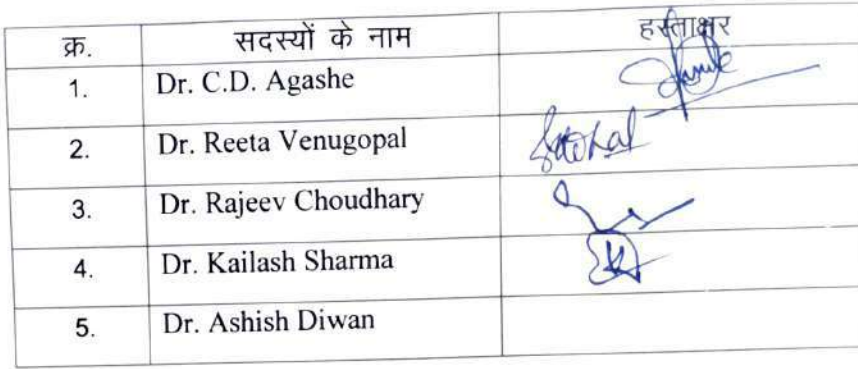 क्र. सदस्यों के नाम हस्ताक्षर
1. Dr. C.D. Agashe
2. Dr. Reeta Venugopal
3. Dr. Rajeev Choudhary
4. Dr. Kailash Sharma
5. Dr. Ashish Diwan